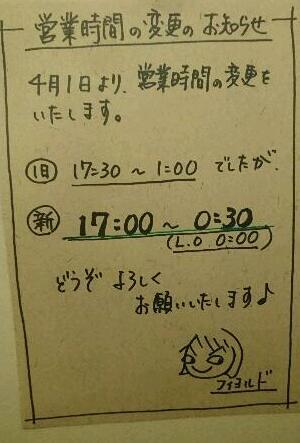 営業時間の変更のお知らせ
4月1日より、営業時間の変更を
いたします。
旧 17:30 ～ 1:00 でしたが、
新 17:00 ～ 0:30
(L.O 0:00)
どうぞ よろしく
お願いいたします♪
フィヨルド